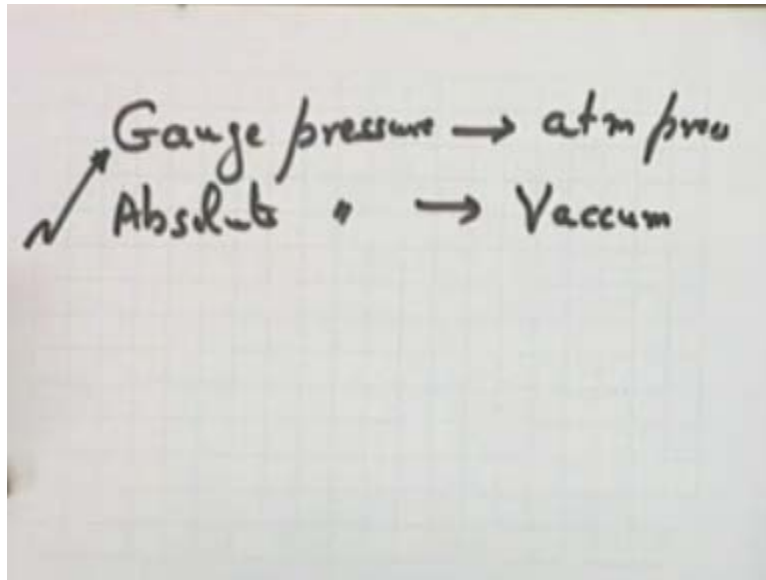 Gauge pressure → atm press
Absolute " → Vaccum